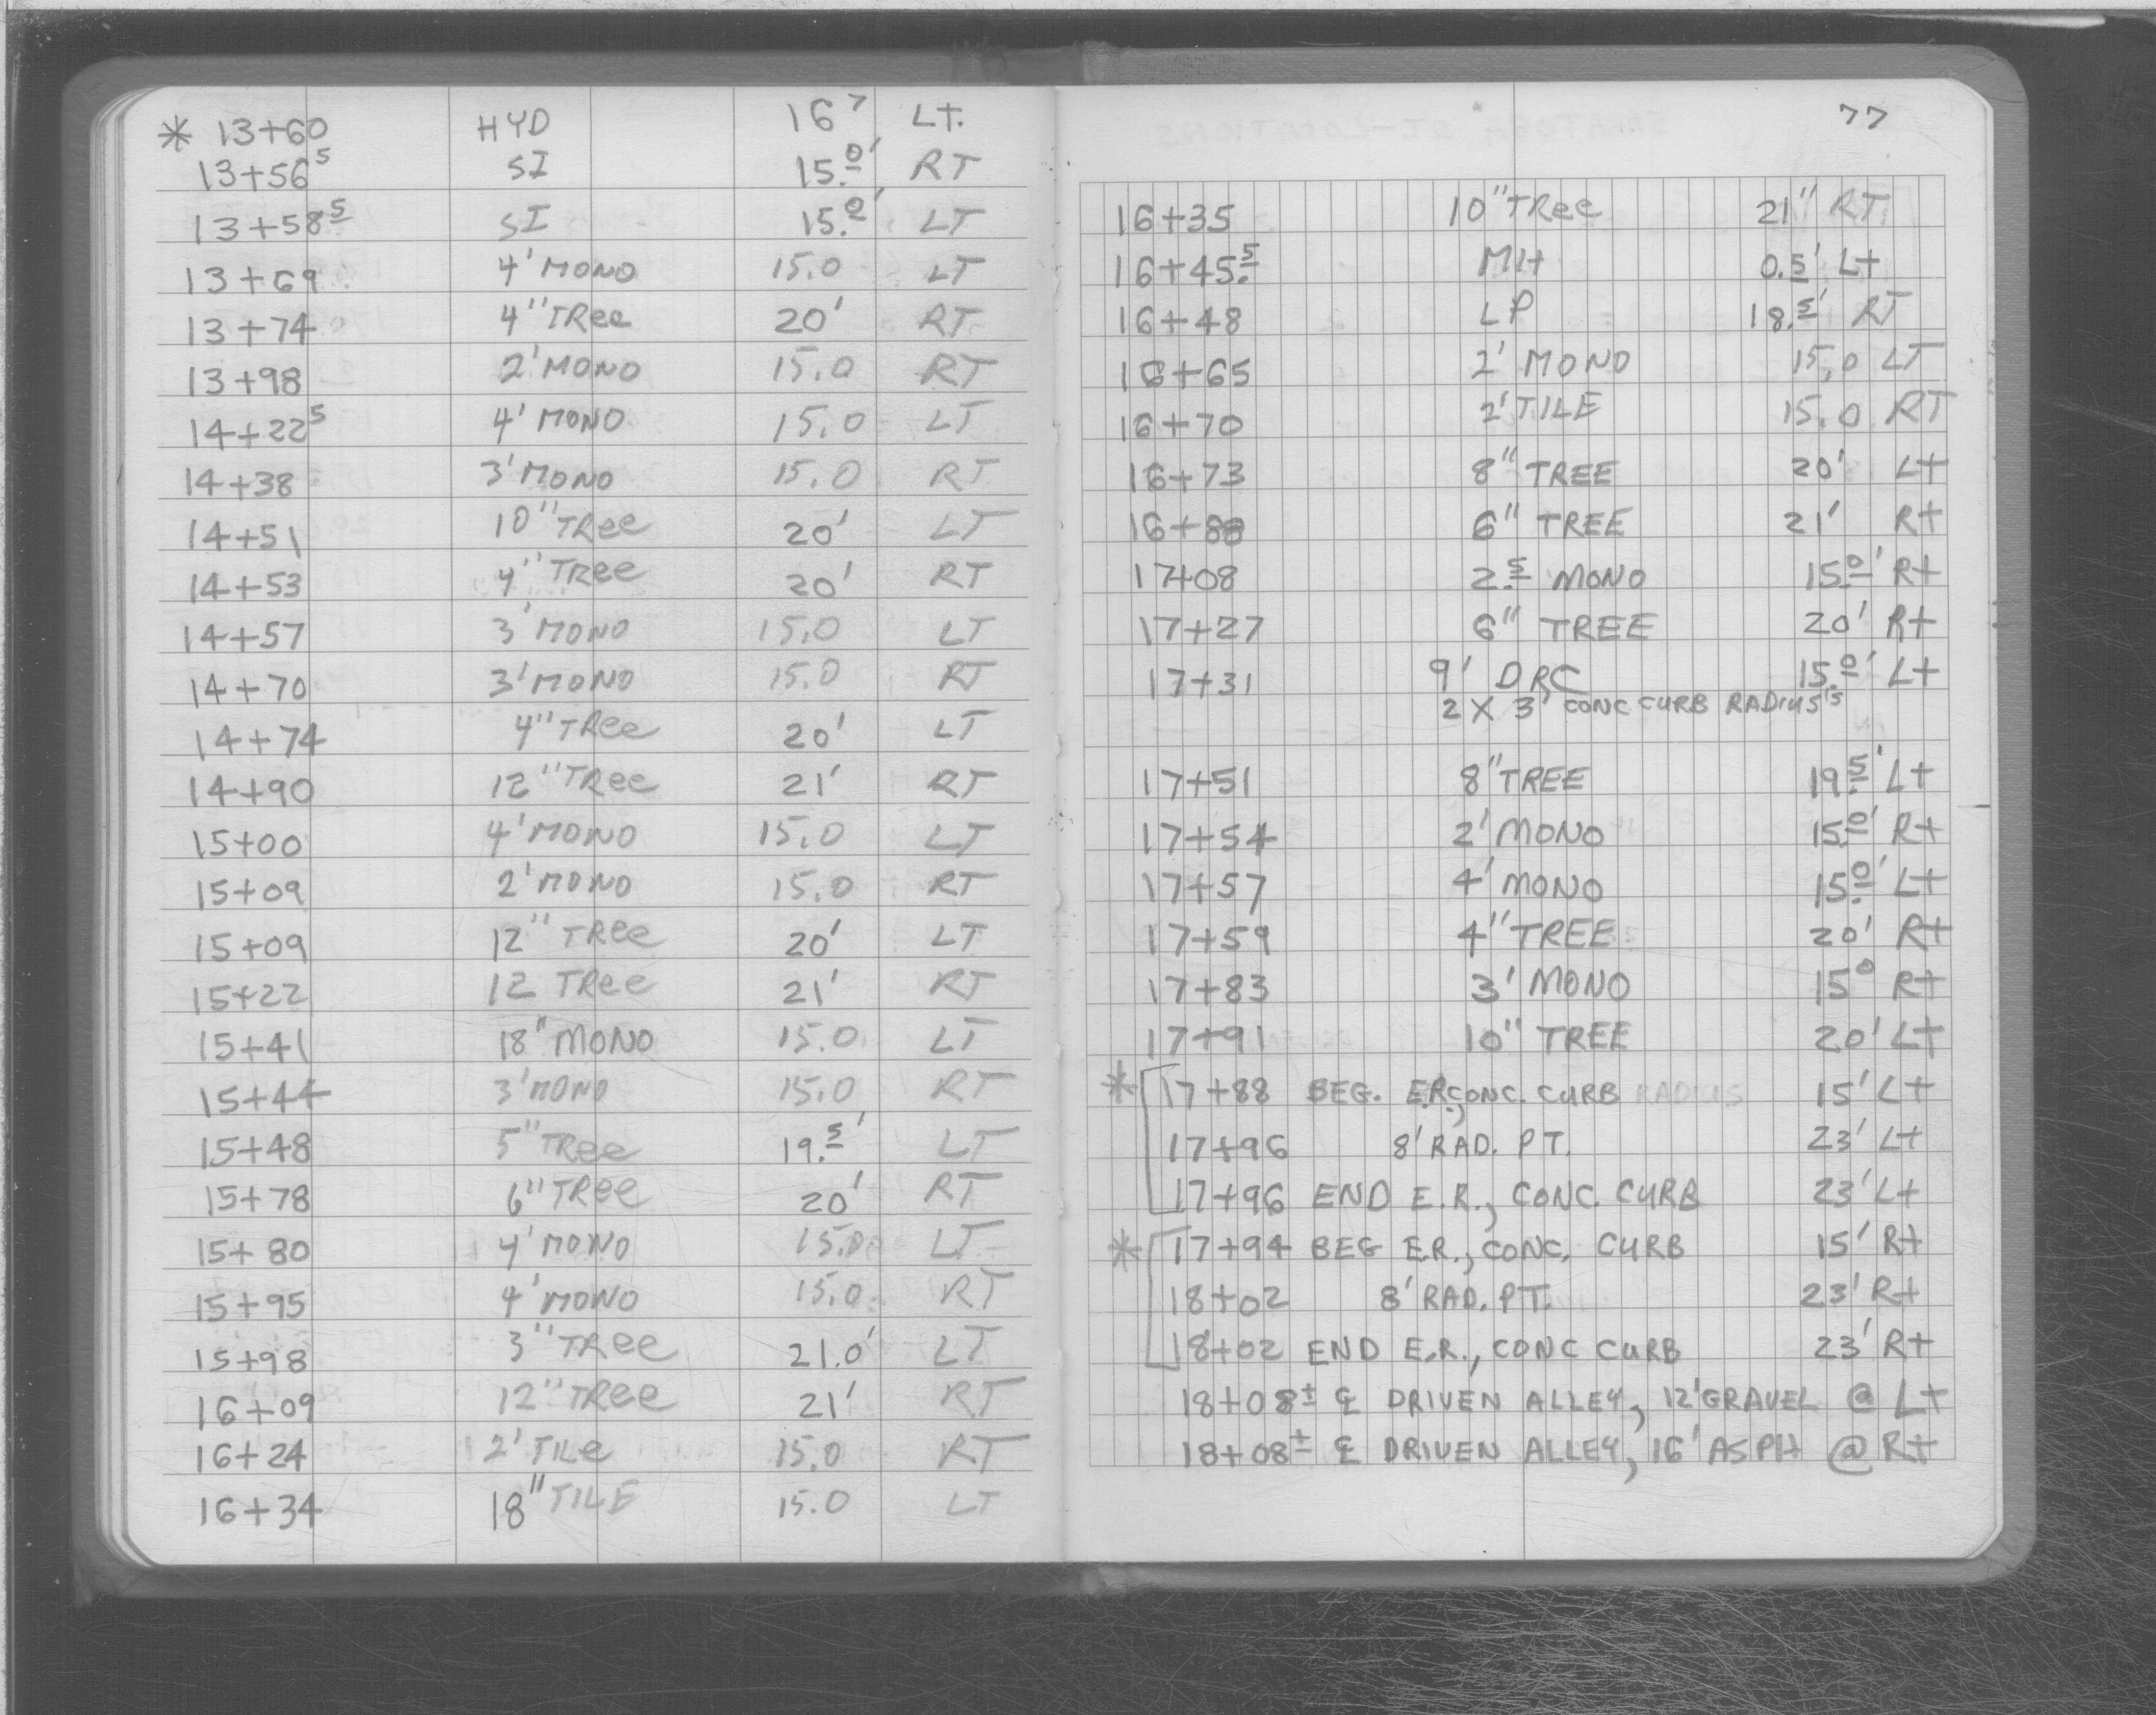 * 13+60 HYD 16⁷ LT.
13+56⁵ SI 15.0' RT
13+58⁵ SI 15.0' LT
13+69 4' MONO 15.0 LT
13+74 4" TRee 20' RT
13+98 2' MONO 15.0 RT
14+22⁵ 4' MONO 15.0 LT
14+38 3' MONO 15.0 RT
14+51 10" TRee 20' LT
14+53 4" TRee 20' RT
14+57 3' MONO 15.0 LT
14+70 3' MONO 15.0 RT
14+74 4" TRee 20' LT
14+90 12" TRee 21' RT
15+00 4' MONO 15.0 LT
15+09 2' MONO 15.0 RT
15+09 12" TRee 20' LT
15+22 12 TRee 21' RT
15+41 18" MONO 15.0 LT
15+44 3' MONO 15.0 RT
15+48 5" TRee 19.5' LT
15+78 6" TRee 20' RT
15+80 4' MONO 15.0 LT
15+95 4' MONO 15.0 RT
15+98 3" TRee 21.0' LT
16+09 12" TRee 21' RT
16+24 2' TILe 15.0 RT
16+34 18" TILE 15.0 LT
77
16+35 10" TRee 21" RT
16+45.5 MH 0.5' Lt
16+48 LP 18.5' RT
16+65 2' MONO 15.0 LT
16+70 2' TILE 15.0 RT
16+73 8" TREE 20' Lt
16+88 6" TREE 21' Rt
17+08 2.5 MONO 15.0' Rt
17+27 6" TREE 20' Rt
17+31 9' DRC 15.0' Lt
2 X 3' CONC CURB RADIUS'S
17+51 8" TREE 19.5' Lt
17+54 2' MONO 15.0' Rt
17+57 4' MONO 15.0' Lt
17+59 4" TREE 20' Rt
17+83 3' MONO 15⁰ Rt
17+91 10" TREE 20' Lt
* 17+88 BEG. E.R., CONC. CURB RADIUS 15' Lt
17+96 8' RAD. PT. 23' Lt
17+96 END E.R., CONC. CURB 23' Lt
* 17+94 BEG E.R., CONC. CURB 15' Rt
18+02 8' RAD. PT. 23' Rt
18+02 END E.R., CONC CURB 23' Rt
18+08± ℄ DRIVEN ALLEY, 12' GRAVEL @ Lt
18+08± ℄ DRIVEN ALLEY, 16' ASPH @ Rt